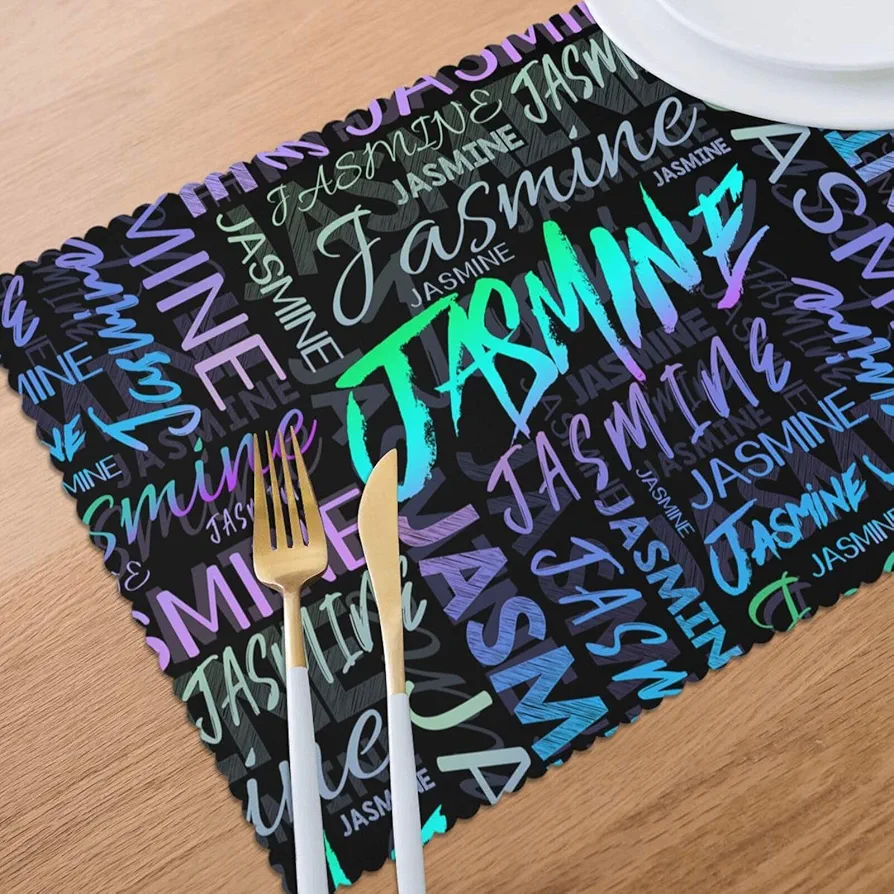 JASMINE
JASMINE
JASM
JASMINE
Jasmine
JASMINE
JASMINE
JASMINE
JASMINE
MINE
Jasmine
JASMINE
MINE
smine
JASMINE
JASMINE
JASMINE
JASMINE
JASMINE
JASMIN
JASM
JASM
SMINE
JASMINE
ine
JASMINE
JA